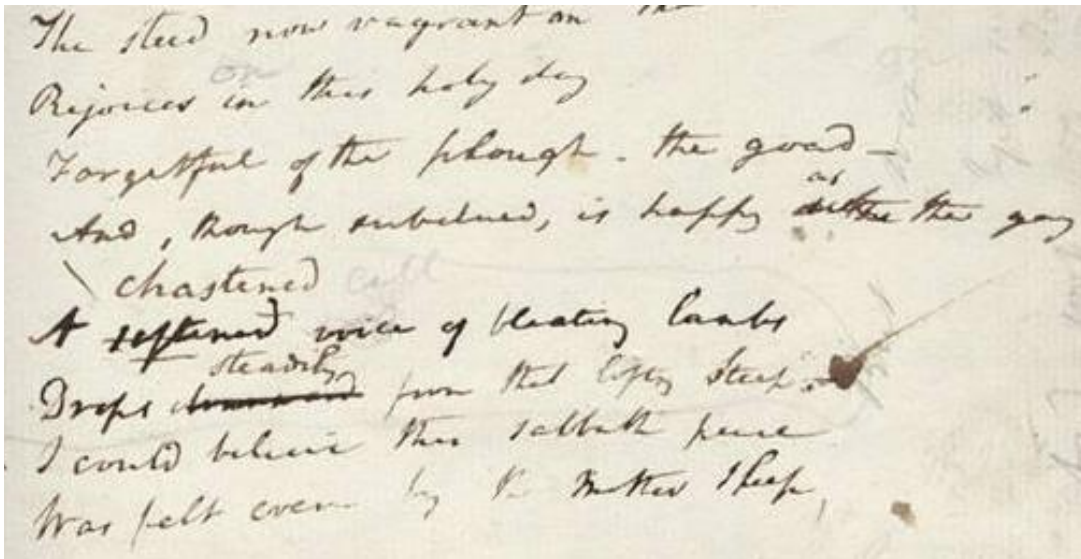 The steed now vagrant on the
on
Rejoices in this holy day
Forgetful of the plough - the goad -
as
And, though subdued, is happy the gay
chastened call
A softened voice of bleating lambs
steadily
Drops downward from that lofty steep -
I could believe this sabbath peace
Was felt even by the mother sheep,